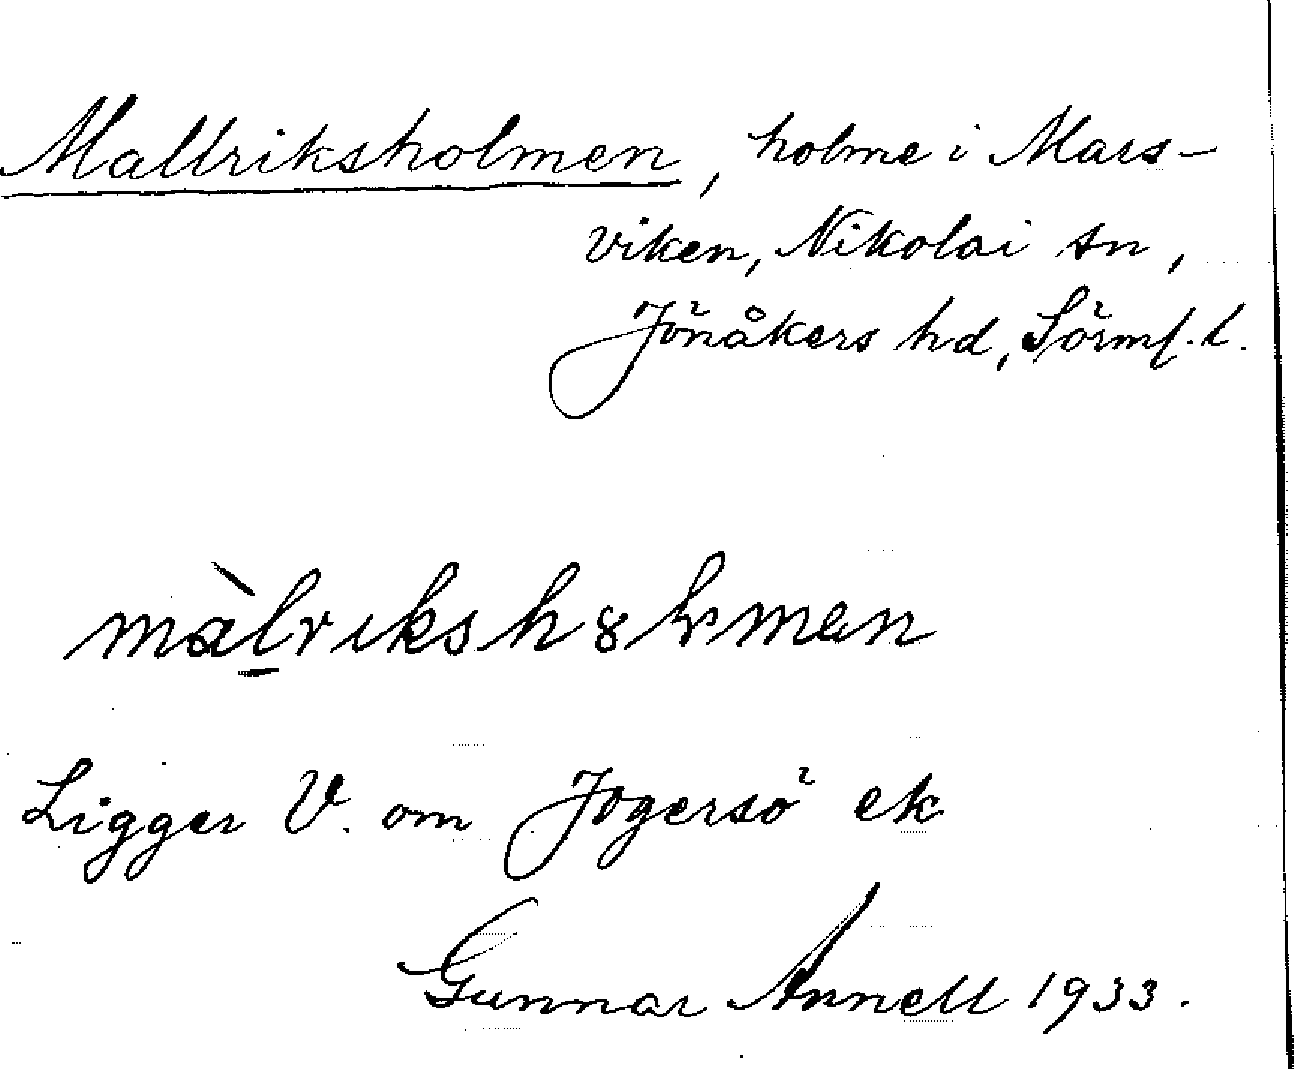 Mallriksholmen, holme i Mars-
viken, Nikolai sn,
Jönåkers hd, Sörml. l.
màlrikshȣlmen
Ligger V. om Jogersö ek
Gunnar Annell 1933.